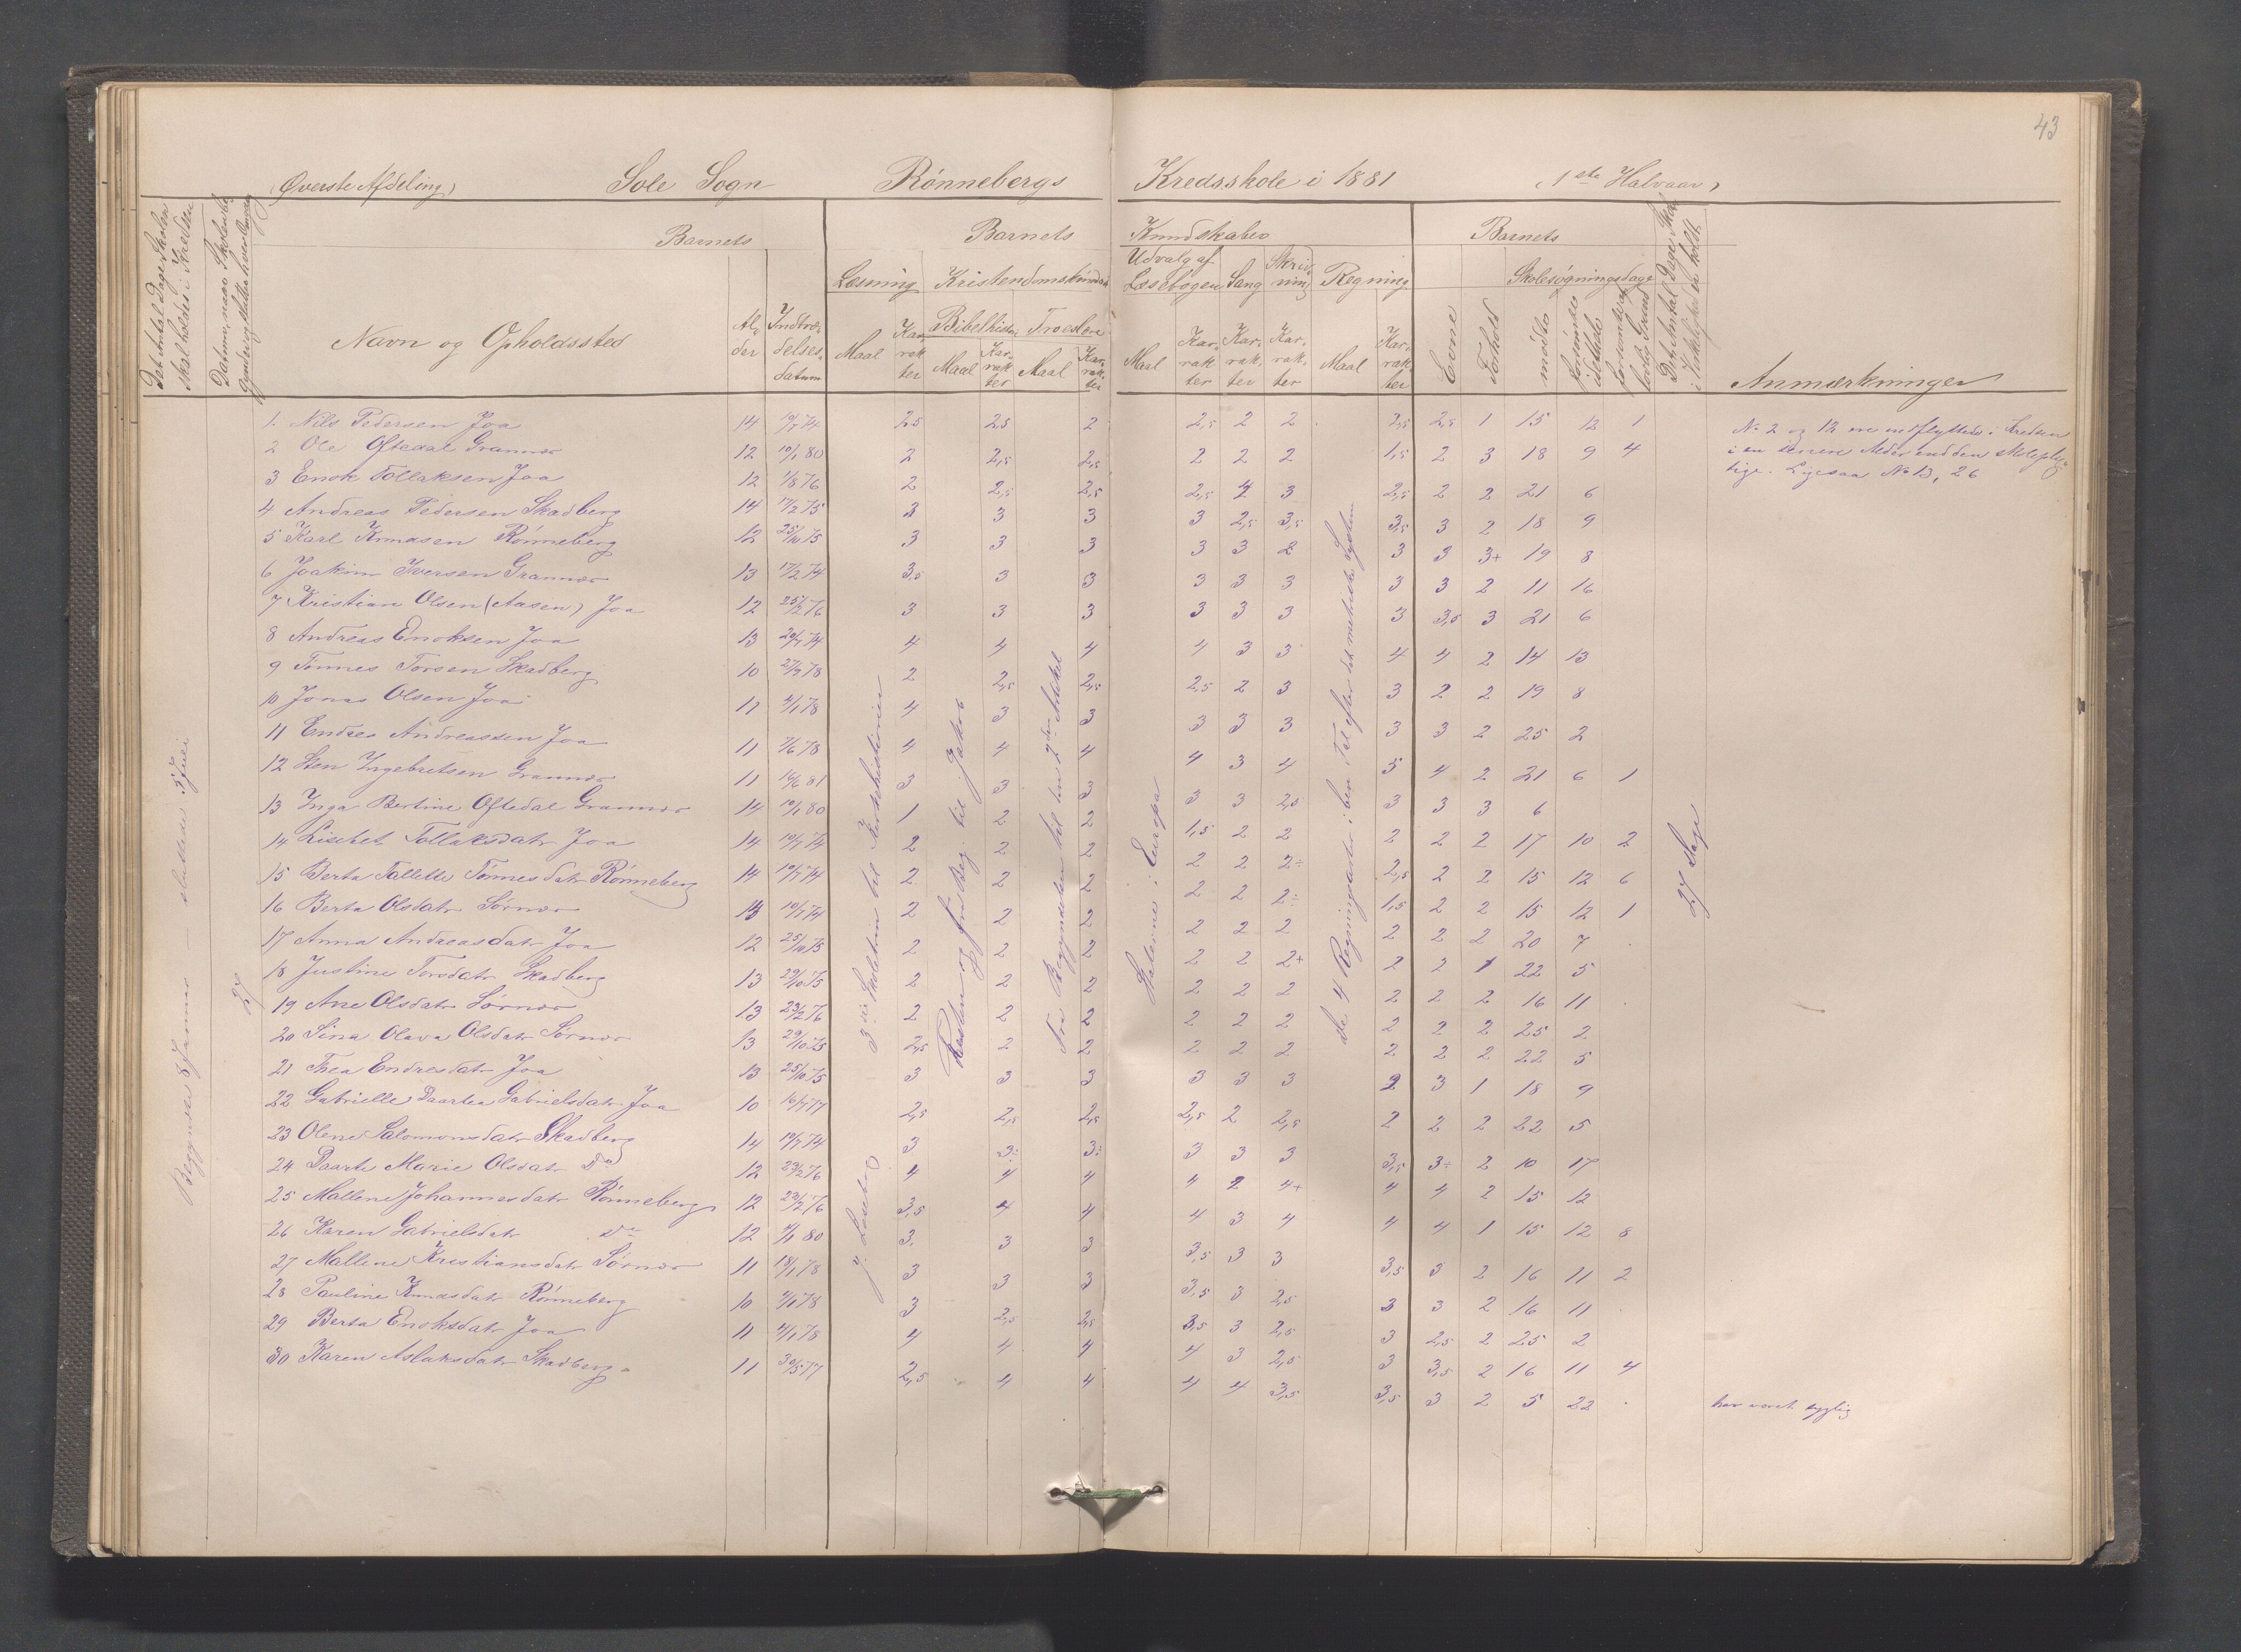 43
(Øverste Afdeling) Sole Sogn Rønnebergs Kredsskole i 1881 (1ste Halvaar)
Det Antal Dage Skolen skal holdes i Kredsen
Barnets
Navn og Opholdssted
Alder
Indtrædelsesdatum
Barnets Kundskaber
Læsning
Kristendomskundskab
Bibelhistorie
Troeslære
Maal
Karakter
Maal
Karakter
Maal
Karakter
Udvalg af Læsebogen
Sang
Skrivning
Regning
Maal
Karakter
Karakter
Karakter
Maal
Karakter
Barnets
Evne
Forhold
Skolesøgningsdage
mødte
forsømte
Det Antal Dage Skolen i Virkelighed er holdt
Anmærkninger
1. Nils Pedersen Joa 14 10/7 74 2,5 2,5 2 2,5 2 2 2,5 2,5 1 15 12 1
2 Ole Oftedal Grannes 12 10/1 80 2 2,5 2,5 2 2 2 1,5 2 3 18 9 4
3 Enok Tollaksen Joa 12 1/8 76 2 2,5 2,5 2,5 2 3 2,5 2 2 21 6
4 Andreas Pedersen Skadberg 14 17/2 75 3 3 3 3 2,5 3,5 3,5 3 2 18 9
5 Karl Knudsen Rønneberg 12 25/10 75 3 3 3 3 3 2 3 3 3+ 19 8
6 Joakim Iversen Grannes 13 17/2 74 3,5 3 3 3 3 3 3 3 2 11 16
7 Kristian Olsen (Aasen) Joa 12 25/2 76 3 3 3 3 3 3 3 3,5 3 21 6
8 Andreas Enoksen Joa 13 20/7 74 4 4 4 4 3 3 4 4 2 14 13
9 Tønnes Torsen Skadberg 10 27/7 78 2 2,5 2,5 2,5 2 3 3 2 2 19 8
10 Jonas Olsen Joa 11 4/1 78 4 3 3 3 3 3 3 3 2 25 2
11 Endres Andreassen Joa 11 7/6 78 4 4 4 4 3 4 5 4 2 21 6 1
12 Sten Ingebretsen Grannes 11 16/6 81 3 3 3 3 3 2,5 3 3 3 6
13 Inga Bertine Oftedal Grannes 14 10/1 80 1 2 2 1,5 2 2 2 2 2 17 10 2
14 Lisebet Tollaksdatr Joa 14 10/7 74 2 2 2 2 2 2÷ 2,5 2 2 15 12 6
15 Berta Tallette Tønnesdatr Rønneberg 14 10/7 74 2 2 2 2 2 2÷ 1,5 2 2 15 12 1
16 Berta Olsdatr Sørnes 14 10/7 74 2 2 2 2 2 2 2 2 2 20 7
17 Anna Andreasdatr Joa 12 25/10 75 2 2 2 2 2 2+ 2 2 1 22 5
18 Justine Torsdatr Skadberg 13 29/10 75 2 2 2 2 2 2 2 2 2 16 11
19 Ane Olsdatr Sørnes 13 23/2 76 2 2 2 2 2 2 2 2 2 25 2
20 Sina Olava Olsdatr Sørnes 13 29/10 75 2,5 2 2 2 2 2 2 2 2 22 5
21 Thea Endresdatr Joa 13 25/10 75 3 3 3 3 3 3 2 3 1 18 9
22 Gabrielle Daarta Gabrielsdatr Joa 10 16/7 77 2,5 2,5 2,5 2,5 2 2,5 2 2 2 22 5
23 Olene Salomonsdatr Skadberg 14 10/7 74 3 3÷ 3÷ 3 3 3 3,5 3÷ 2 10 17
24 Daarte Marie Olsdatr Do 12 23/2 76 4 4 4 4 2 4+ 4 4 2 15 12
25 Mallene Johannesdatr Rønneberg 12 23/2 76 3,5 4 4 4 3 4 4 4 1 15 12 8
26 Karen Gabrielsdatr Do 12 9/1 80 3 3 3 3,5 3 3 3,5 3 2 16 11 2
27 Mallene Kristiansdatr Sørnes 11 18/1 78 3 3 3 3,5 3 2,5 3 3 2 16 11
28 Pauline Knudsdatr Rønneberg 10 4/1 78 3 2,5 2,5 3,5 3 2,5 3 2,5 2 25 2
29 Berta Enoksdatr Joa 11 4/1 78 4 4 4 4 3 2,5 3 3,5 2 16 11 4
30 Karen Aslaksdatr Skadberg 11 30/5 77 2,5 4 4 4 4 3,5 3,5 3 2 5 22
Begyndte 8 Januar – sluttede 5 Juli
27
3die Skoletrin til Kirkehistorien
J. Læsebog
Fra Begyndelsen til den 2den Artikel
Staterne i Europa
De 4 Regningsarter i ben. Tal efter det metriske System
27 Dage
No 2 og 12 ere indflyttede i Kredsen
i en senere Alder end den skolepligtige. Ligesaa No 13, 26
har været sygelig